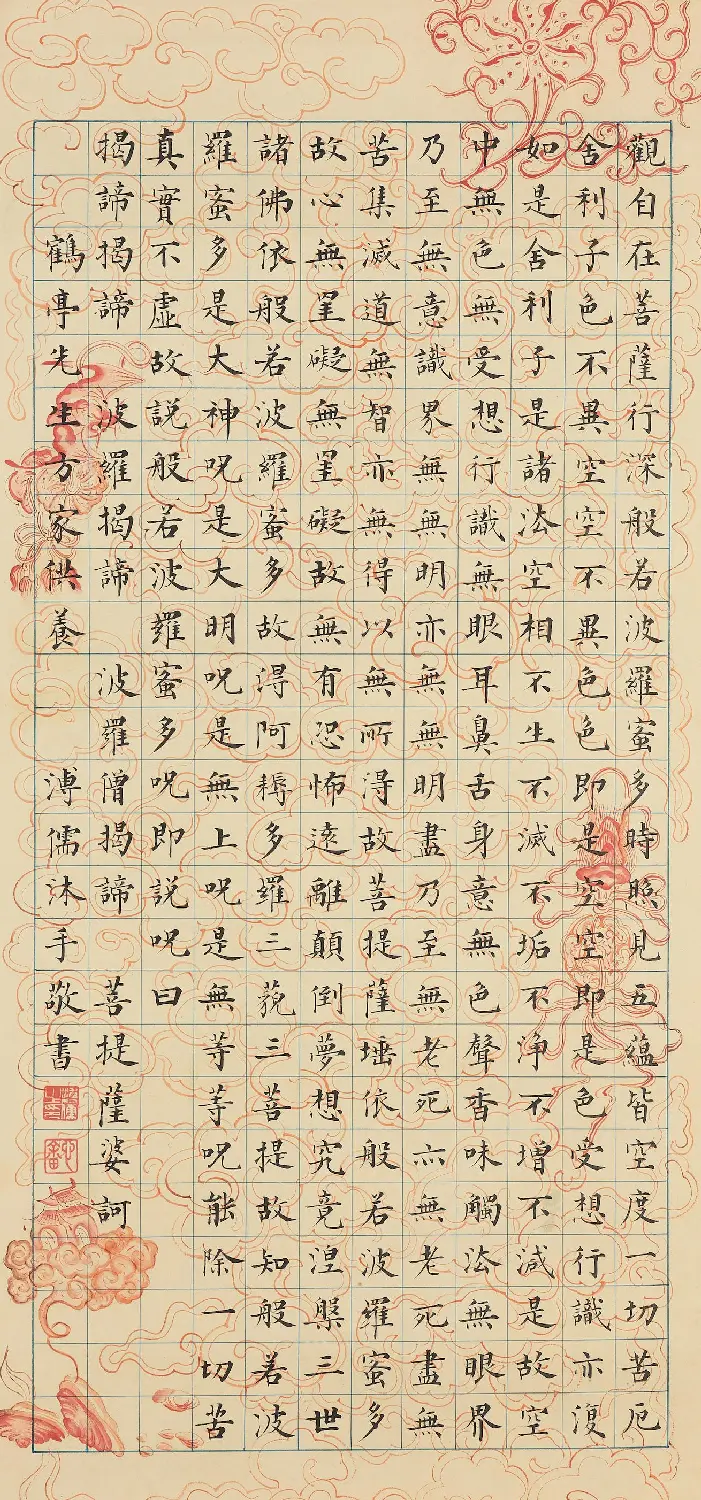 觀自在菩薩行深般若波羅蜜多時照見五蘊皆空度一切苦厄
舍利子色不異空空不異色色即是空空即是色受想行識亦復
如是舍利子是諸法空相不生不滅不垢不淨不增不減是故空
中無色無受想行識無眼耳鼻舌身意無色聲香味觸法無眼界
乃至無意識界無無明亦無無明盡乃至無老死亦無老死盡無
苦集滅道無智亦無得以無所得故菩提薩埵依般若波羅蜜多
故心無罣礙無罣礙故無有恐怖遠離顛倒夢想究竟涅槃三世
諸佛依般若波羅蜜多故得阿耨多羅三藐三菩提故知般若波
羅蜜多是大神呪是大明呪是無上呪是無等等呪能除一切苦
真實不虛故説般若波羅蜜多呪即説呪曰
揭諦揭諦 波羅揭諦 波羅僧揭諦 菩提薩婆訶
鶴亭先生方家供養 溥儒沐手敬書